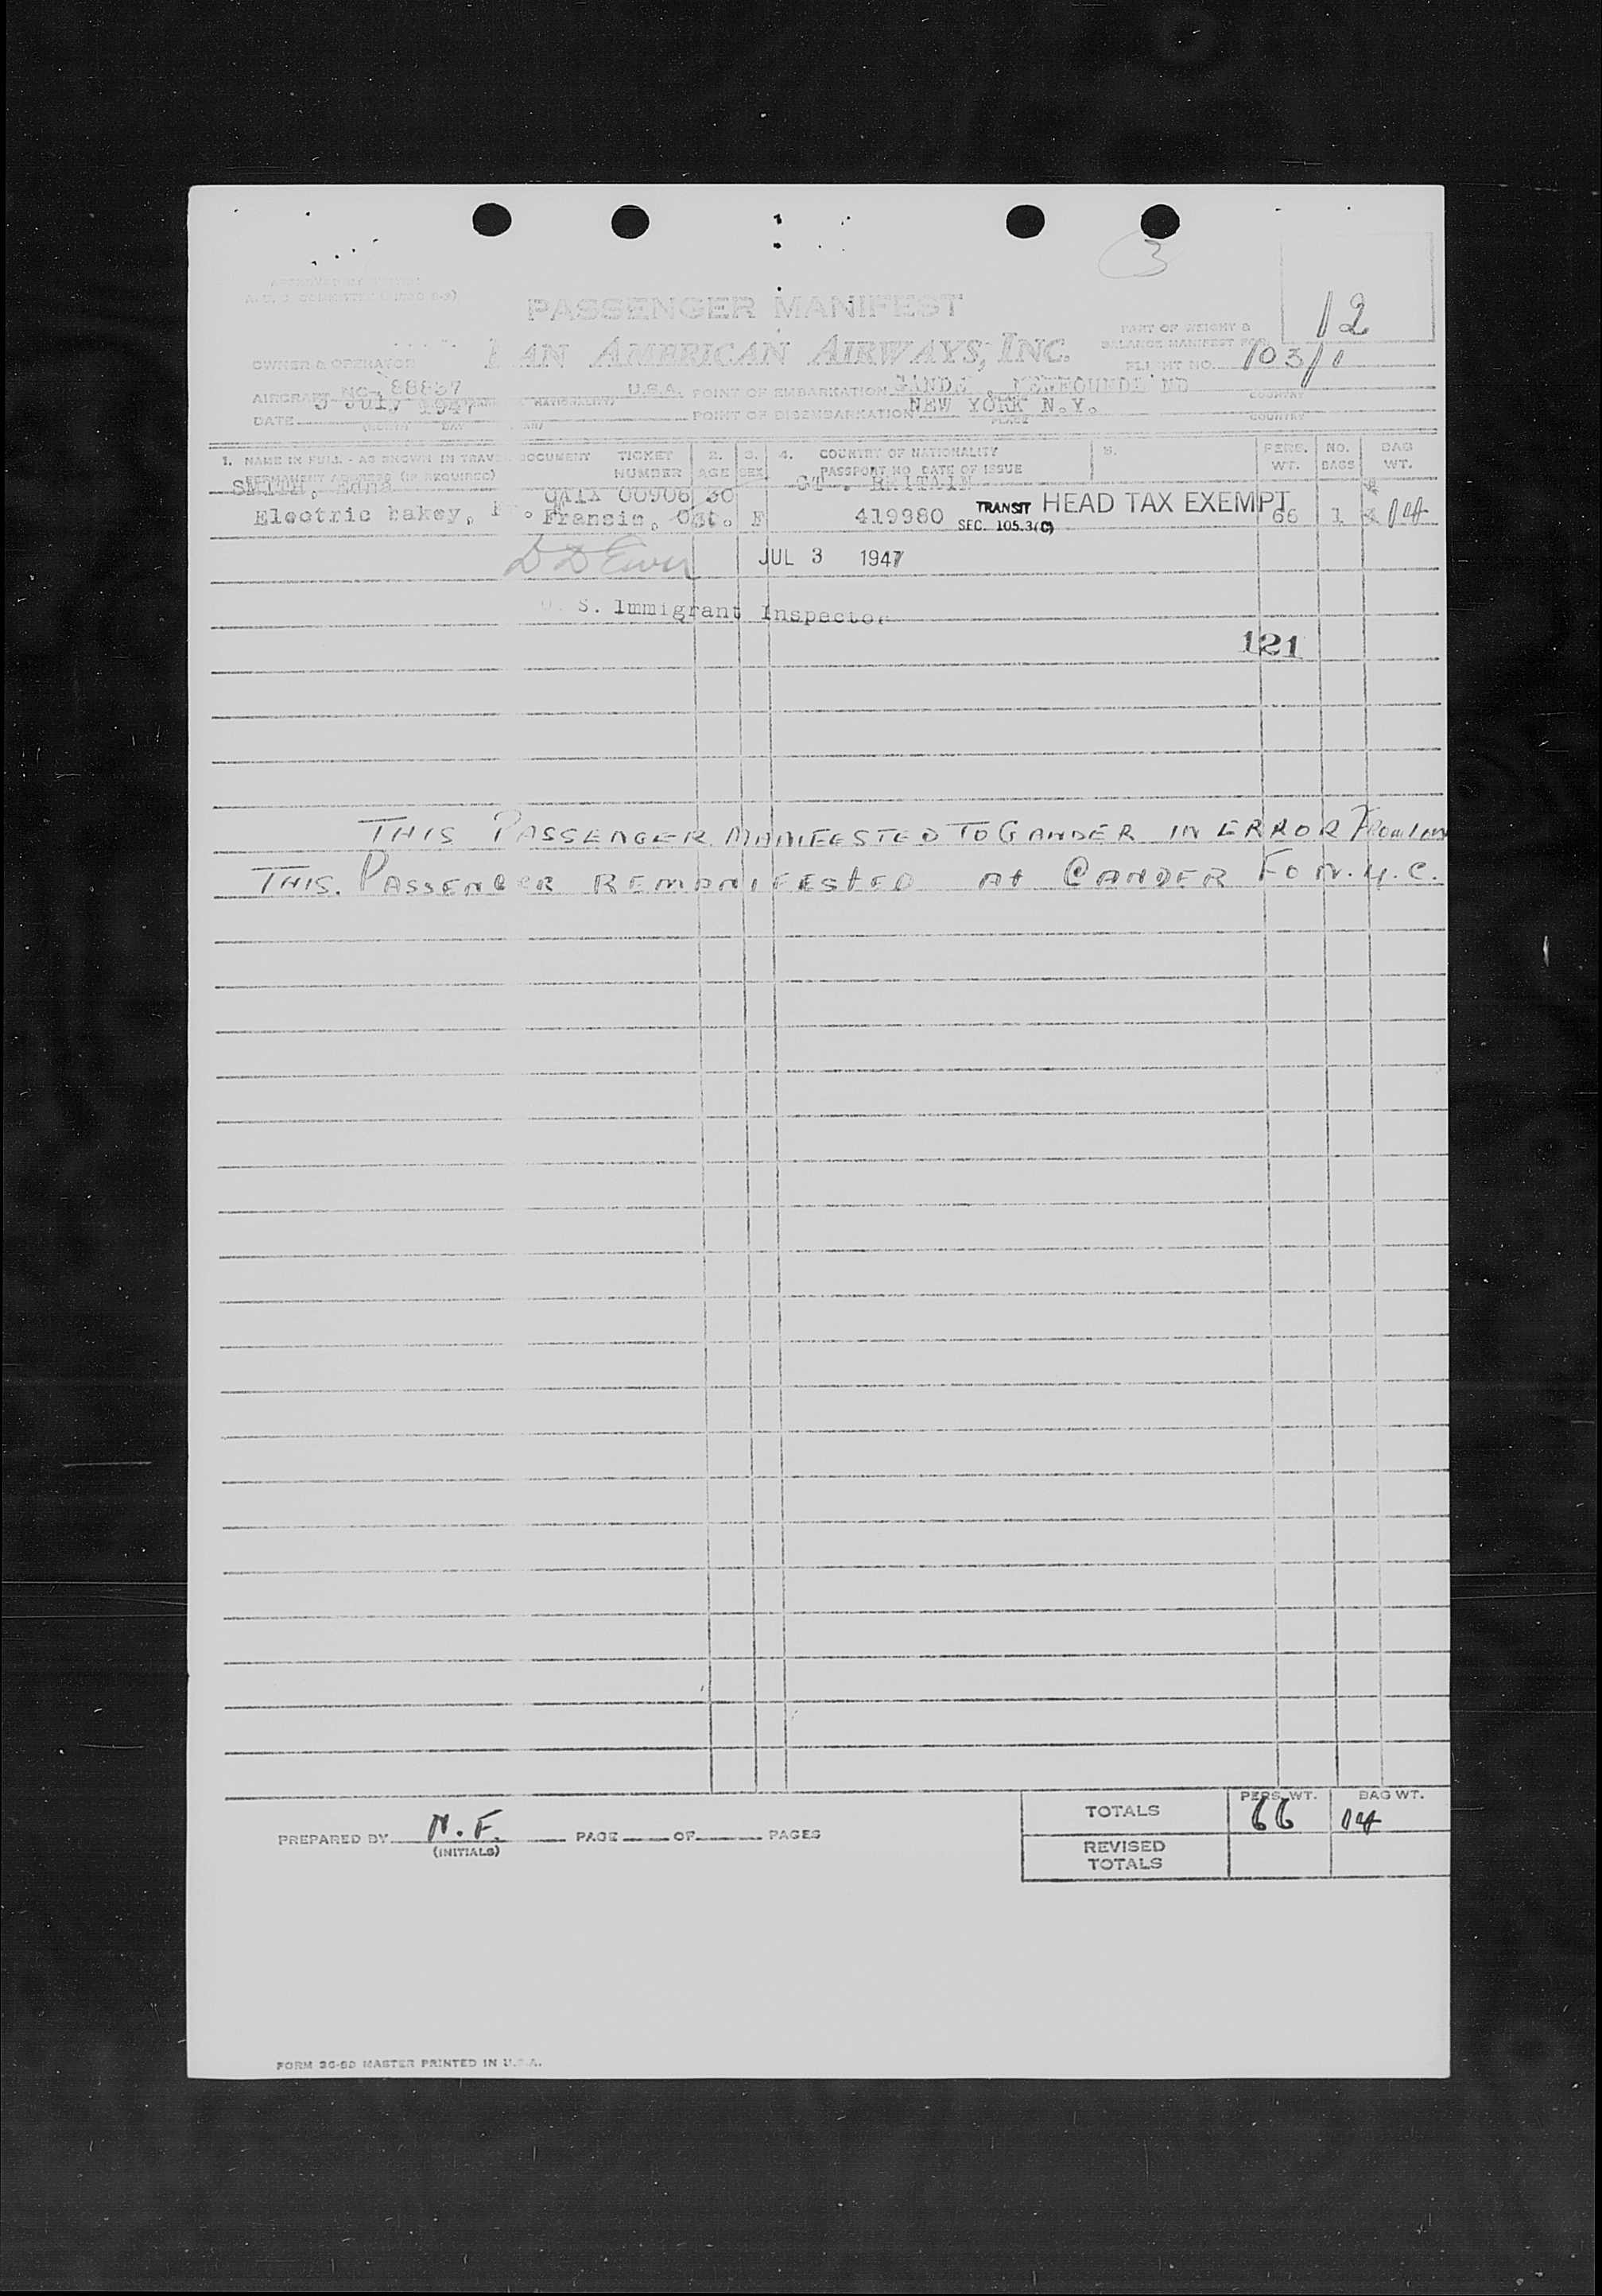 3
12
PASSENGER MANIFEST
PART OF WEIGHT &
BALANCE MANIFEST FOR
AN AMERICAN AIRWAYS, INC.
OWNER & OPERATOR
FLIGHT NO. 103/1
AIRCRAFT NC- 88837 U.S.A. POINT OF EMBARKATION COUNTRY
DATE 3 July 1947 POINT OF DISEMBARKATION NEW YORK N.Y. COUNTRY
PLACE
1. NAME IN FULL - AS SHOWN IN TRAV DOCUMENT TICKET NUMBER 2. AGE 3. SEX 4. COUNTRY OF NATIONALITY 5. PERS. WT. NO. BAGS BAG WT.
PERMANENT ADDRESS (IF REQUIRED) PASSPORT NO. DATE OF ISSUE
SMITH, Edna 00906 30 GT. BRITAIN
Electric bakey, Francis, Ont. F 419980 TRANSIT HEAD TAX EXEMPT 66 1 14
SEC. 105.3(C)
JUL 3 1947
S. Immigrant Inspector
121
THIS PASSENGER MANIFESTED TO GANDER IN ERROR From
THIS. PASSENGER REMANIFESTED At GANDER Fo N.Y.C.
TOTALS PERS. WT. 66 BAG WT. 14
PREPARED BY N.F. PAGE OF PAGES
(INITIALS)
REVISED
TOTALS
FORM MASTER PRINTED IN U.S.A.